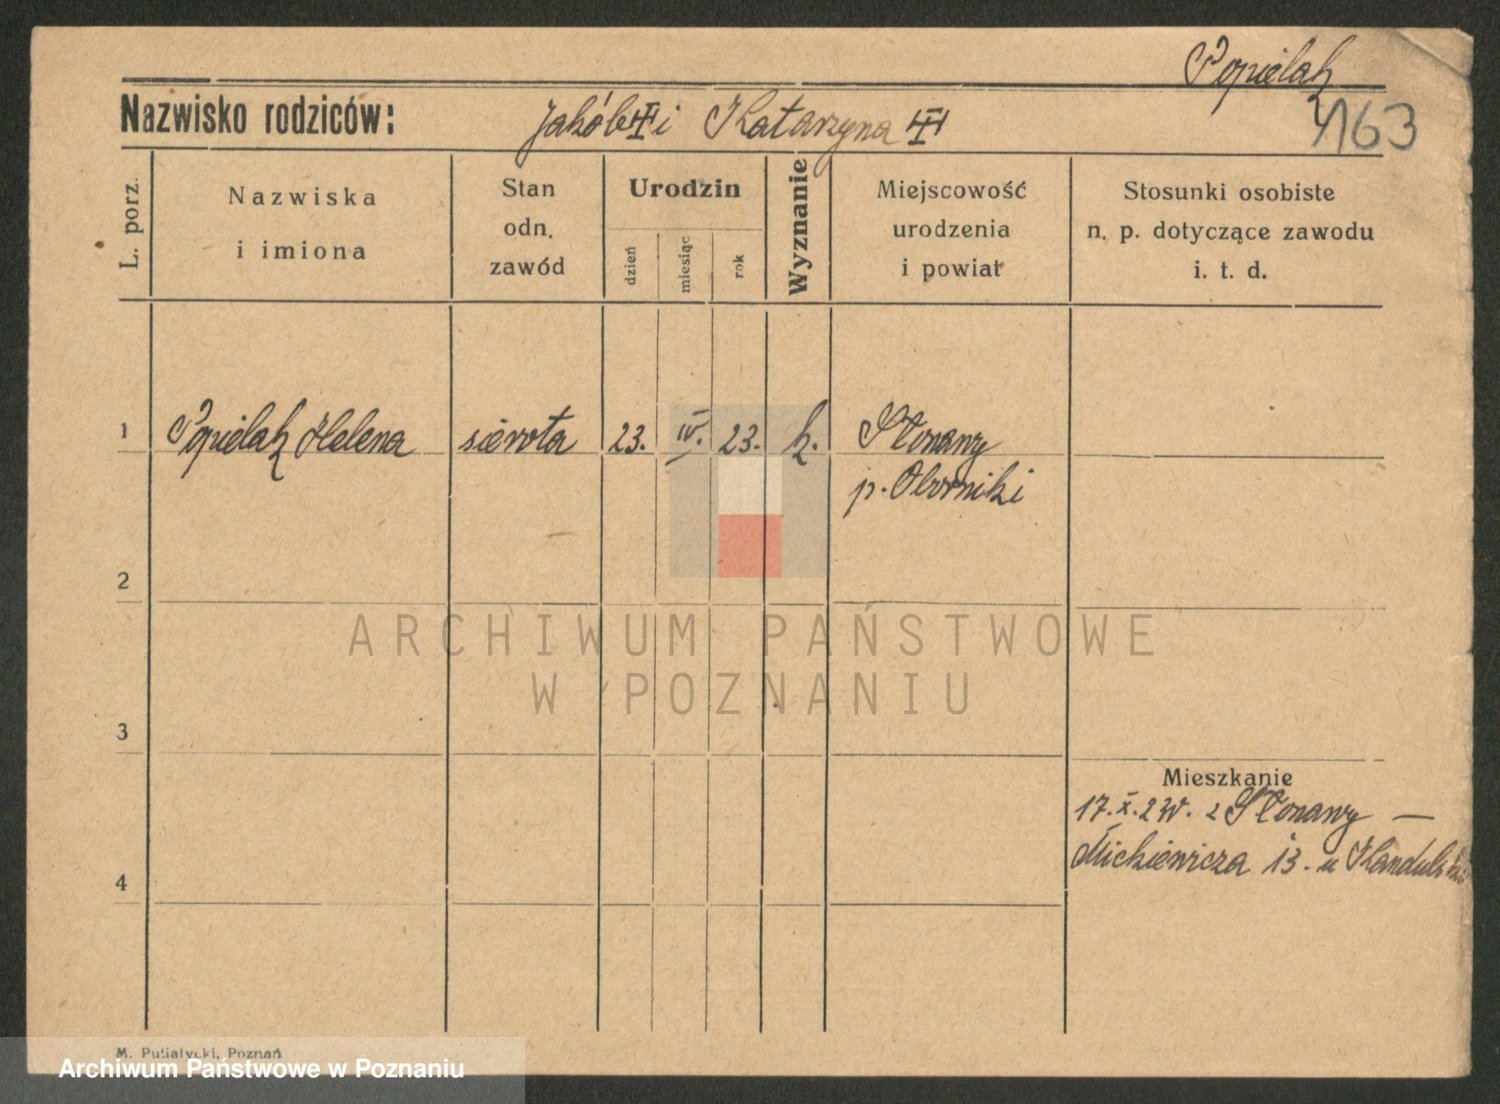 Popielak
163
Nazwisko rodziców: Jakób i Katarzyna
L. porz.
Nazwiska
i imiona
Stan
odn.
zawód
Urodzin
dzień
miesiąc
rok
Wyznanie
Miejscowość
urodzenia
i powiat
Stosunki osobiste
n. p. dotyczące zawodu
i. t. d.
1 Popielak Helena sierota 23. IV. 23. k. Słonawy
p. Oborniki
2
ARCHIWUM PAŃSTWOWE
W POZNANIU
3
Mieszkanie
17. X. z Słonawy —
Mickiewicza 13. u
4
M. Putiatycki, Poznań
Archiwum Państwowe w Poznaniu